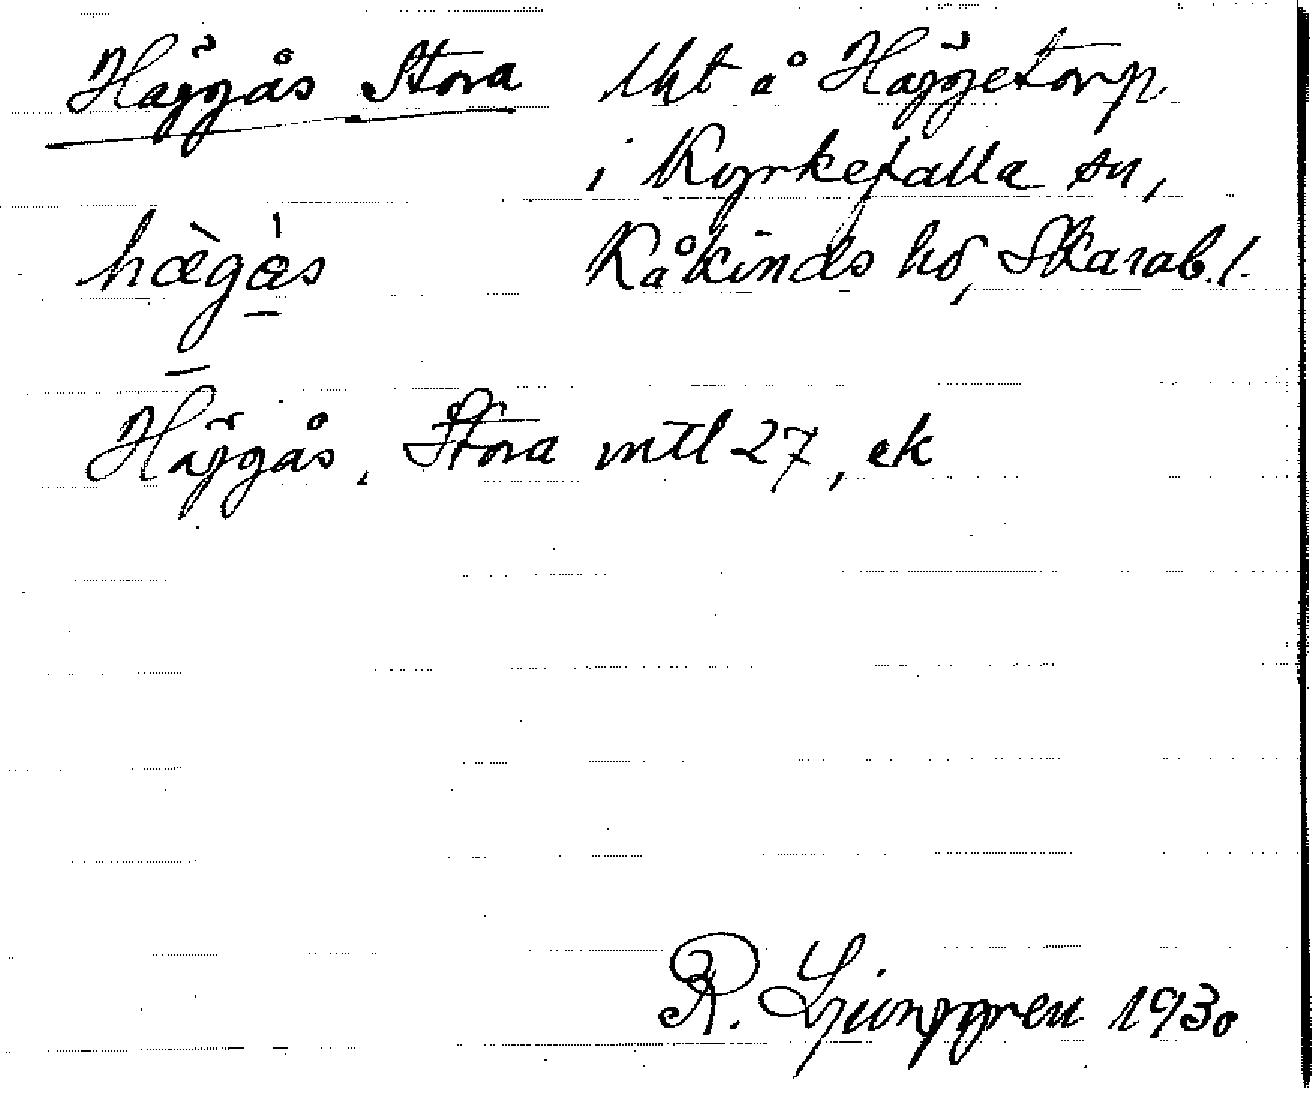 Häggås Stora
Uht å Häggetorp
i Kyrkefalla sn,
Kåkinds hd, Skarab. l.
hægås
Häggås, Stora mtl 27, ek
R. Ljunggren 1930